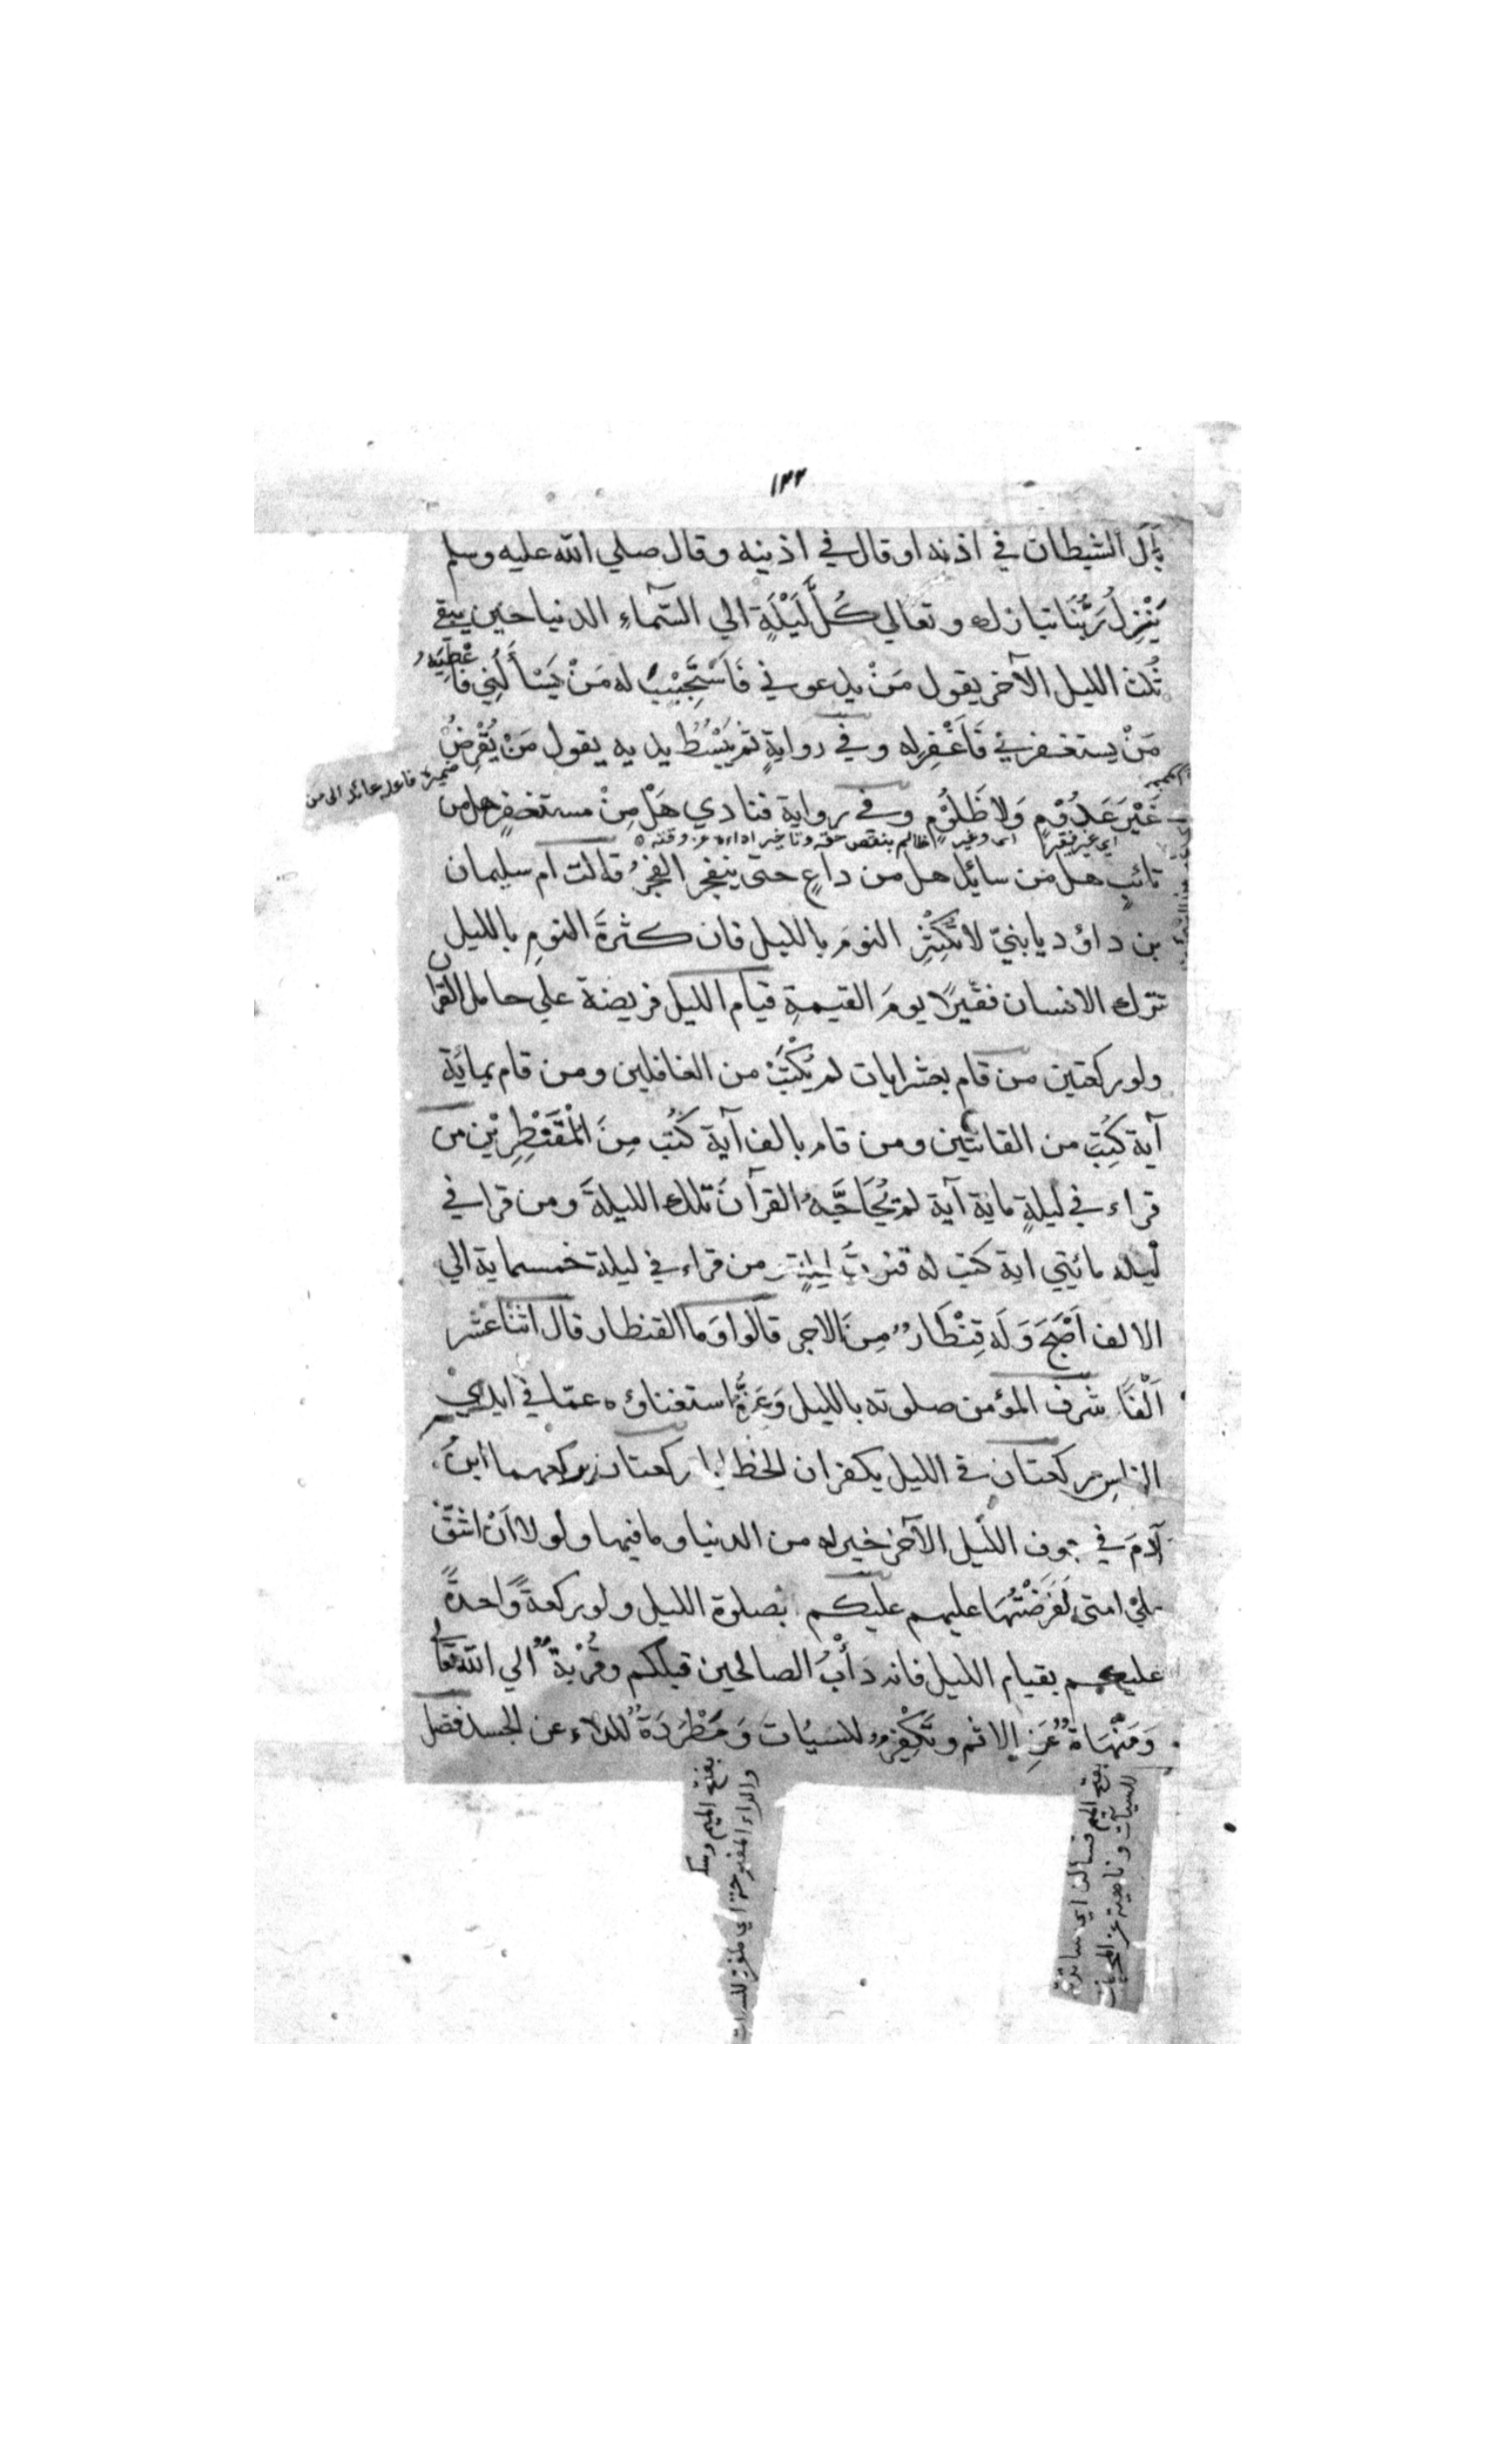 ١٢٢
بال الشيطان في اذنه او قال في اذنيه وقال صلي الله عليه وسلم
يَنْزِلُ رَبُّنَا تبارك وتعالي كُلَّ لَيْلَةٍ الي السَّمآءِ الدنيا حين يبقي
ثُلث الليل الآخر يقول مَنْ يدعوني فَاَسْتَجِيْبُ له مَنْ يَسْأَلُنِي فَاُعْطِيَهُ
مَنْ يستغفرني فَاَغْفِرله وفي روايةٍ ثم يَبْسُطُ يديه يقول مَنْ يُقْرِضُ
ضميره فاعله عائد الى من
غَيْرَ عَدُوْمٍ وَلا ظَلُوْمٍ وفي رواية فنادي هَلْ مِنْ مستغفرٍ هل من
اي غير فقير اى وغير ظالم بنقص حقه وتاخير اداءه عن وقته
تائبٍ هل من سائل هل من داعٍ حتي ينفجر الفجرُ قالت ام سليمان
بن داؤد يا بنيّ لا تُكْثِرِ النومَ بالليل فان كثرةَ النومِ بالليل
تترك الانسان فقيرًا يومَ القيمةِ قيام الليل فريضة علي حامل القرآن
ولو ركعتين من قام بعشر ايات لم يُكْتَبْ من الغافلين ومن قام بمائة
آية كُتِبَ من القانتين ومن قام بالف آية كُتب مِنَ الْمُقَنْطِرِيْن من
قراء في ليلةٍ ماية آية لم يُحَاجَّهُ القرآنُ تلك الليلةَ ومن قرا في
ليلة مائيتي اية كتب له قنوتُ ليلةٍ من قراء في ليلة خمسماية الي
الالف اَصْبَحَ وَلَه قِنْطَارٌ مِنَ الاجر قالوا وَما القنطار قال اثنا عشر
اَلْفًا شرف المؤمن صلوته بالليل وَعِزُّهُ استغناؤه عمّا في ايدي
الناسِ ركعتان في الليل يكفران الخطايا ركعتان يركعهما ابنُ
آدمَ في جوف اللّيل الآخر خير له من الدنيا وما فيها ولولا اَنْ اشقّ
علي امتي لَفَرَضْتُهَا عليهم عليكم بصلوة الليل ولو ركعةً واحدةً
عليكم بقيام الليل فانه دَأْبُ الصالحين قبلكم وقُرْبَةٌ الي الله تعالي
وَمَنْهَاةٌ عَنِ الاثم وتَكْفِيْرٌ للسيّات وَمَطْرَدَةٌ للداء عن الجسد فضل
بفتح الميم وسكـ
والراء المفتوحة اي
بفتح الميم فسكون اي ساترة
للسيآت وناهية عن